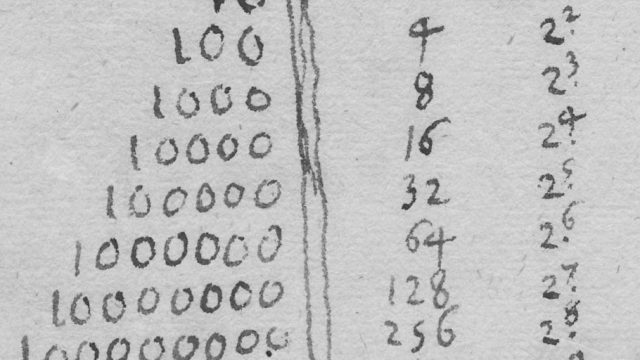 10
100 4 2.²
1000 8 2.³
10000 16 2.⁴
100000 32 2.⁵
1000000 64 2.⁶
10000000 128 2.⁷
100000000 256 2.⁸